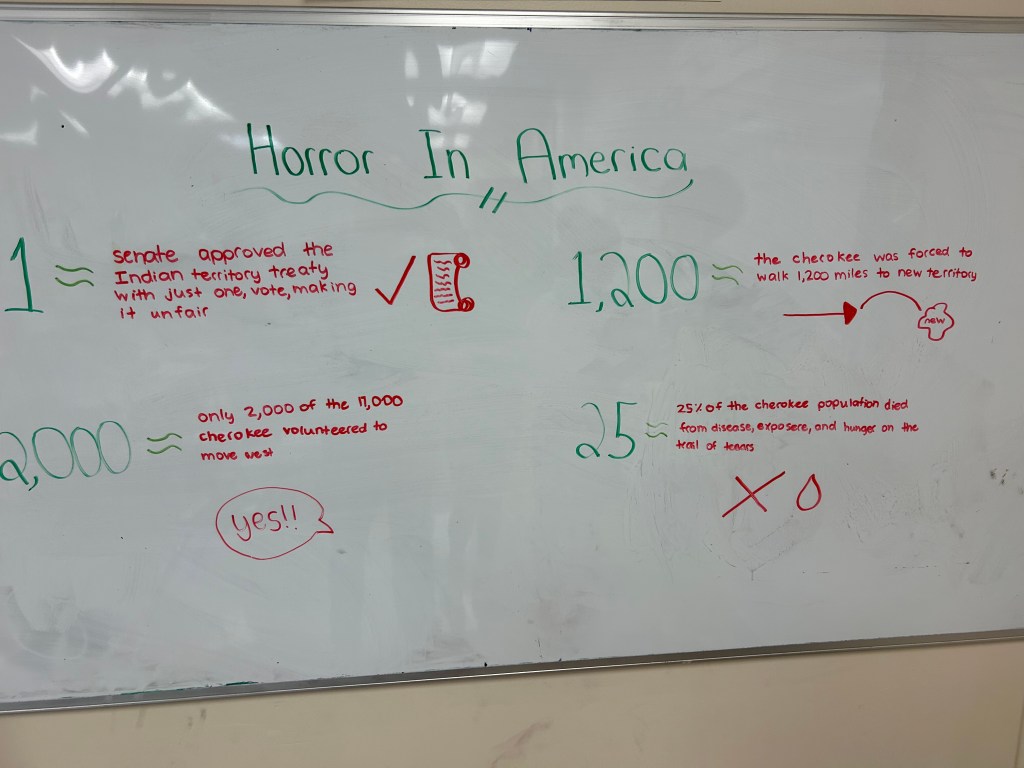 Horror In America
1
senate approved the
Indian territory treaty
with just one, vote, making
it unfair
1,200
the cherokee was forced to
walk 1,200 miles to new territory
new
2,000
only 2,000 of the 17,000
cherokee volunteered to
move west
yes!!
25
25% of the cherokee population died
from disease, exposere, and hunger on the
trail of tears